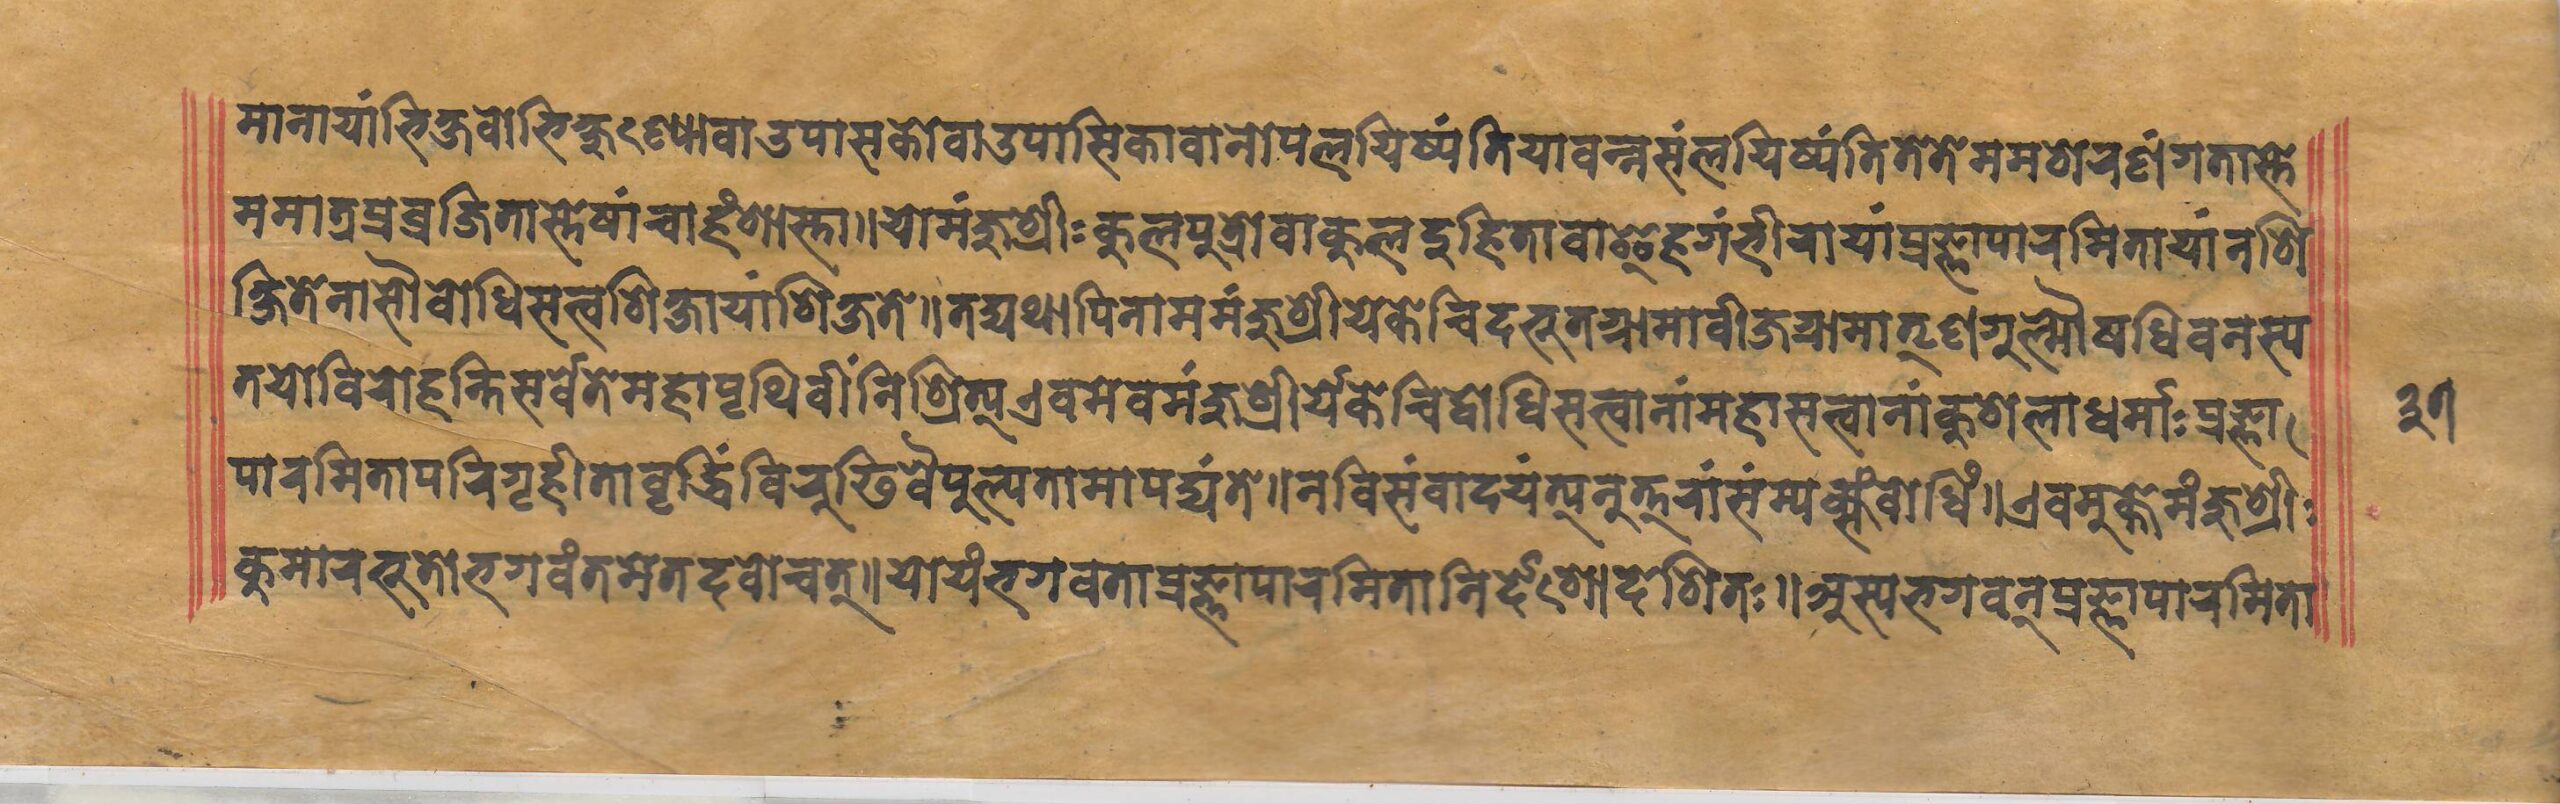 मानायांभिक्षवोभिक्षुण्योवाउपासकोवाउपासिकावानोपलयिष्यंतियावन्नसंलयिष्यंतितेतेममशरणंगतास्ते
ममात्रप्रव्रजितास्तेषांचाहंशास्ता॥योमंजुश्रीःकुलपुत्रोवाकुलदुहितावाइहगंभीरायांप्रज्ञापारमितायांनशि
क्षितेनासौवोधिसत्वशिक्षायांशिक्षते॥तद्यथापिनाममंजुश्रीयेकेचिदभूतग्रामावीजग्रामातृणगुल्मौषधिवनस्प
तयोविरोहन्तिसर्वेतेमहापृथिवींनिश्रित्यएवमेवमंजुश्रीर्येकेचिद्वोधिसत्वानांमहासत्वानांकुशलाधर्माःप्रज्ञा
पारमितापरिगृहीतावृद्धिंविरुढिवैपुल्यतामापद्यंते॥नविसंवादयंत्यनुत्तरांसंम्यक्संवोधिं॥एवमुक्तेमंजुश्रीः
कुमारभूतोभगवंतमेतदवोचत्॥योयंभगवताप्रज्ञापारमितानिर्देशोदेशितः॥अस्यभगवन्प्रज्ञापारमिता
३१